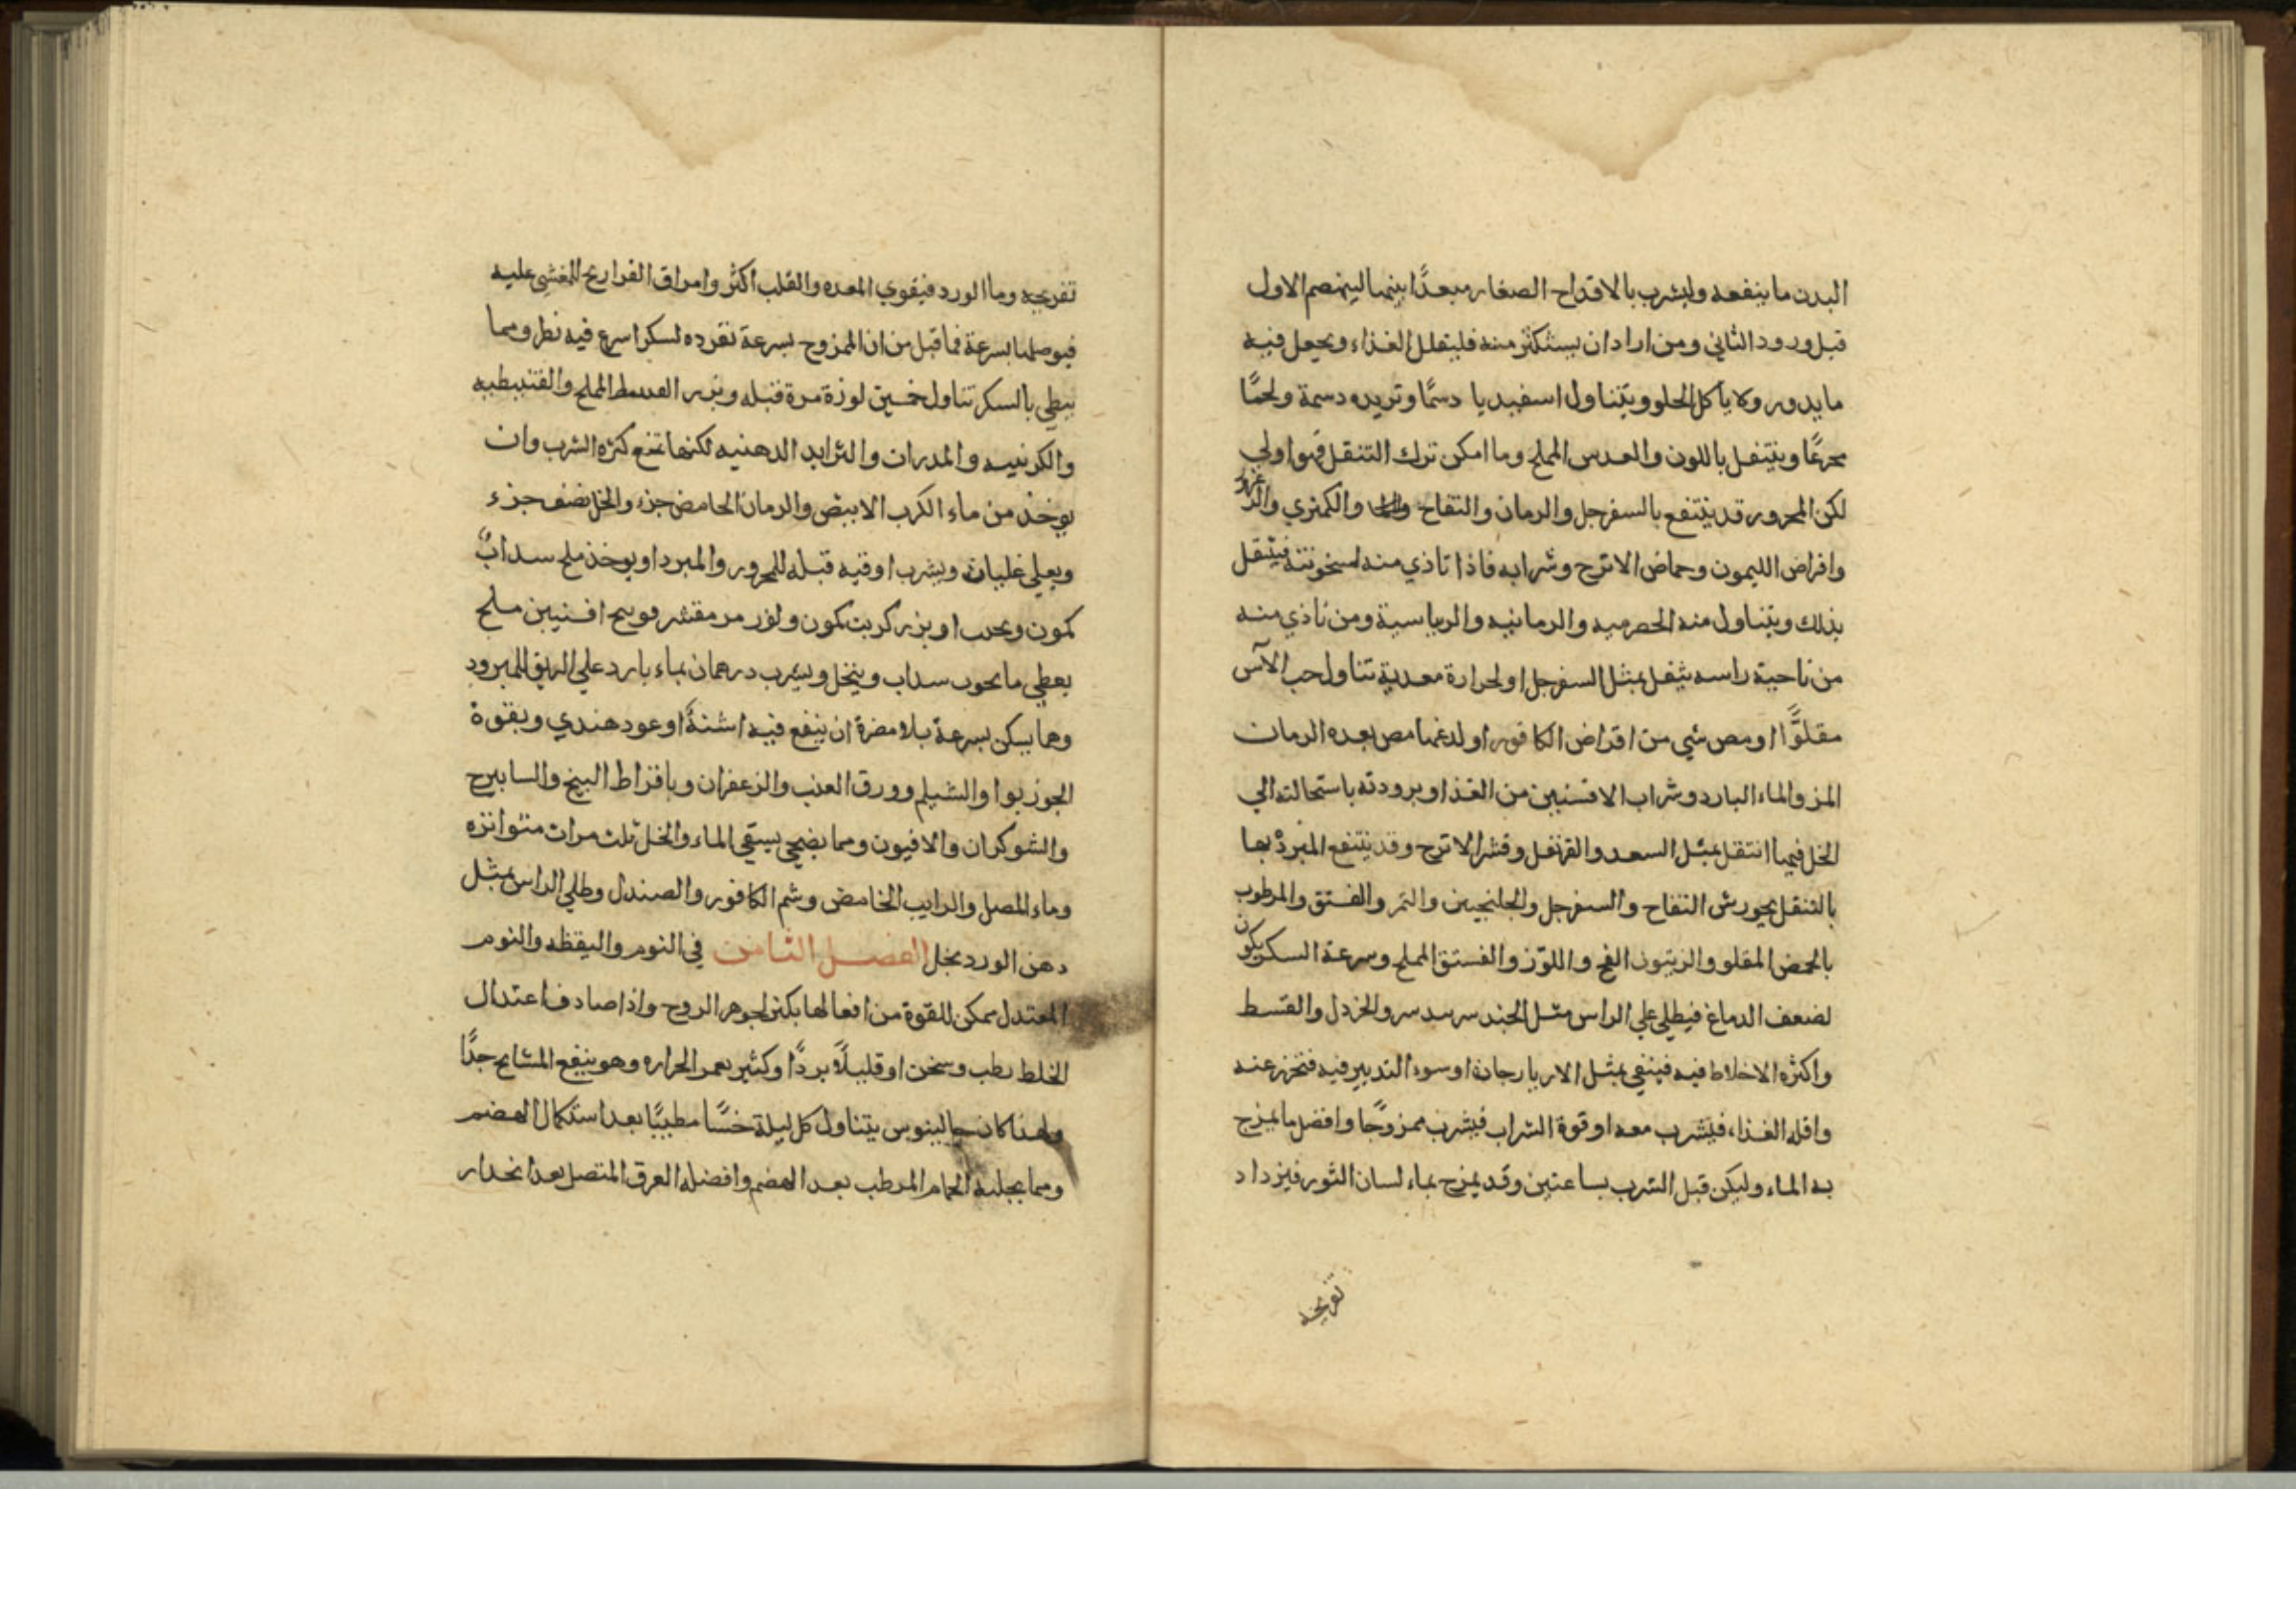 البدن ما ينفعه وليشرب بالاقداح الصغار مبعدًا بينهما لينهضم الاول
قبل ورود الثاني ومن اراد ان يستكثر منه فليقلل الغذاء ويجعل فيه
ما يدور ولا ياكل الحلو ويتناول اسفيديا دسمًا وتريده دسمة ولحمًا
وينتفل باللون والعدس المملح وما امكن ترك التنقل فهو اولي
لكن المحرور قد ينتفع بالسفرجل والرمان والتفاح والكمثري
واقراص الليمون وحماض الاترج وشرابه فاذا تاذي منه لسخونته فينتقل
بذلك ويتناول منه الحصرميه والرمانيه والريباسية ومن تاذي منه
من ناحية راسه بمثل السفرجل او لحرارة معدية تناول حب الآس
مقلوًّا او مص شي من اقراص الكافور او لدغها مص بعده الرمان
المز والماء البارد وشراب الافسنتين من الغذا وبرودته باستحالته الي
الخل فيها انتقل بمثل السعد والقرنفل وقشر الاترج وقد ينتفع المبرد بها
بالتنقل بجورش التفاح والسفرجل والجلنجبين والتمر والفستق والمرطوب
بالحمض المقلو والزيتون الفج واللوز والفستق المملح وسرعة السكر يكون
لضعف الدماغ فيطلي علي الراس مثل والخردل والقسط
واكثره الاخلاط فيه فينقي بمثل او سوء التدبير فيه عند
واقله الغذاء فيشرب معه او قوة الشراب فيشرب ممزوجًا وافضل ما يمزج
به الماء وليكن قبل الشرب بساعتين وقد يمزج بماء لسان الثور فيزداد
تفريحه
تفريحه وماالورد فيقوي المعده والقلب اكثر وامراق الفراريج للمغشي عليه
فيوصلها بسرعة فما قيل من ان الممزوج بسرعة لسكر اسرع فيه نظر ومما
يبطي بالسكر تناول خمسين لوزة مرة قبله وبزر المملح والقنبيطيه
والكرنبيه والمدرات والثرايد الدهنيه لكنها تمنع كثره الشرب وان
يوخذ من ماء الكرب الابيض والرمان الحامض جزء والخل نصف جزء
ويغلي غليان ويشرب اوقيه قبله للمحرور والمبرد او يوخذ ملح سداب
كمون او بزر كمون ولوز مر مقشر افسنتين ملح
يعطي ما سداب وينخل ويشرب درهمان بماء بارد علي الريق للمبرود
ومما يسكن بسرعة بلا مضرة ان ينفع فيه اشنة او عود هندي وبقوة
الجوز بوا والشيلم وورق العنب والزعفران وبافراط البنج
والشوكران والافيون ومما يصحي بسقي الماء والخل ثلث مرات متواتره
وماء المصل والرايب الحامض وشم الكافور والصندل وطلي الراس بمثل
دهن الورد بخل الفصل الثامن في النوم واليقظه والنوم
المعتدل ممكن للقوة من افعالها لجوهر الروح واذا صادف اعتدال
الخلط رطب وسخن او قليلًا بردًا وكثير الحراره وهو ينفع المشايخ جدًّا
ولهذا كان جالينوس يتناول كل ليلة خسًّا مطيبًا بعد استكمال الهضم
ومما يجلبه الحمام المرطب بعد الهضم وافضله الغرق المتصل بعد انحدار